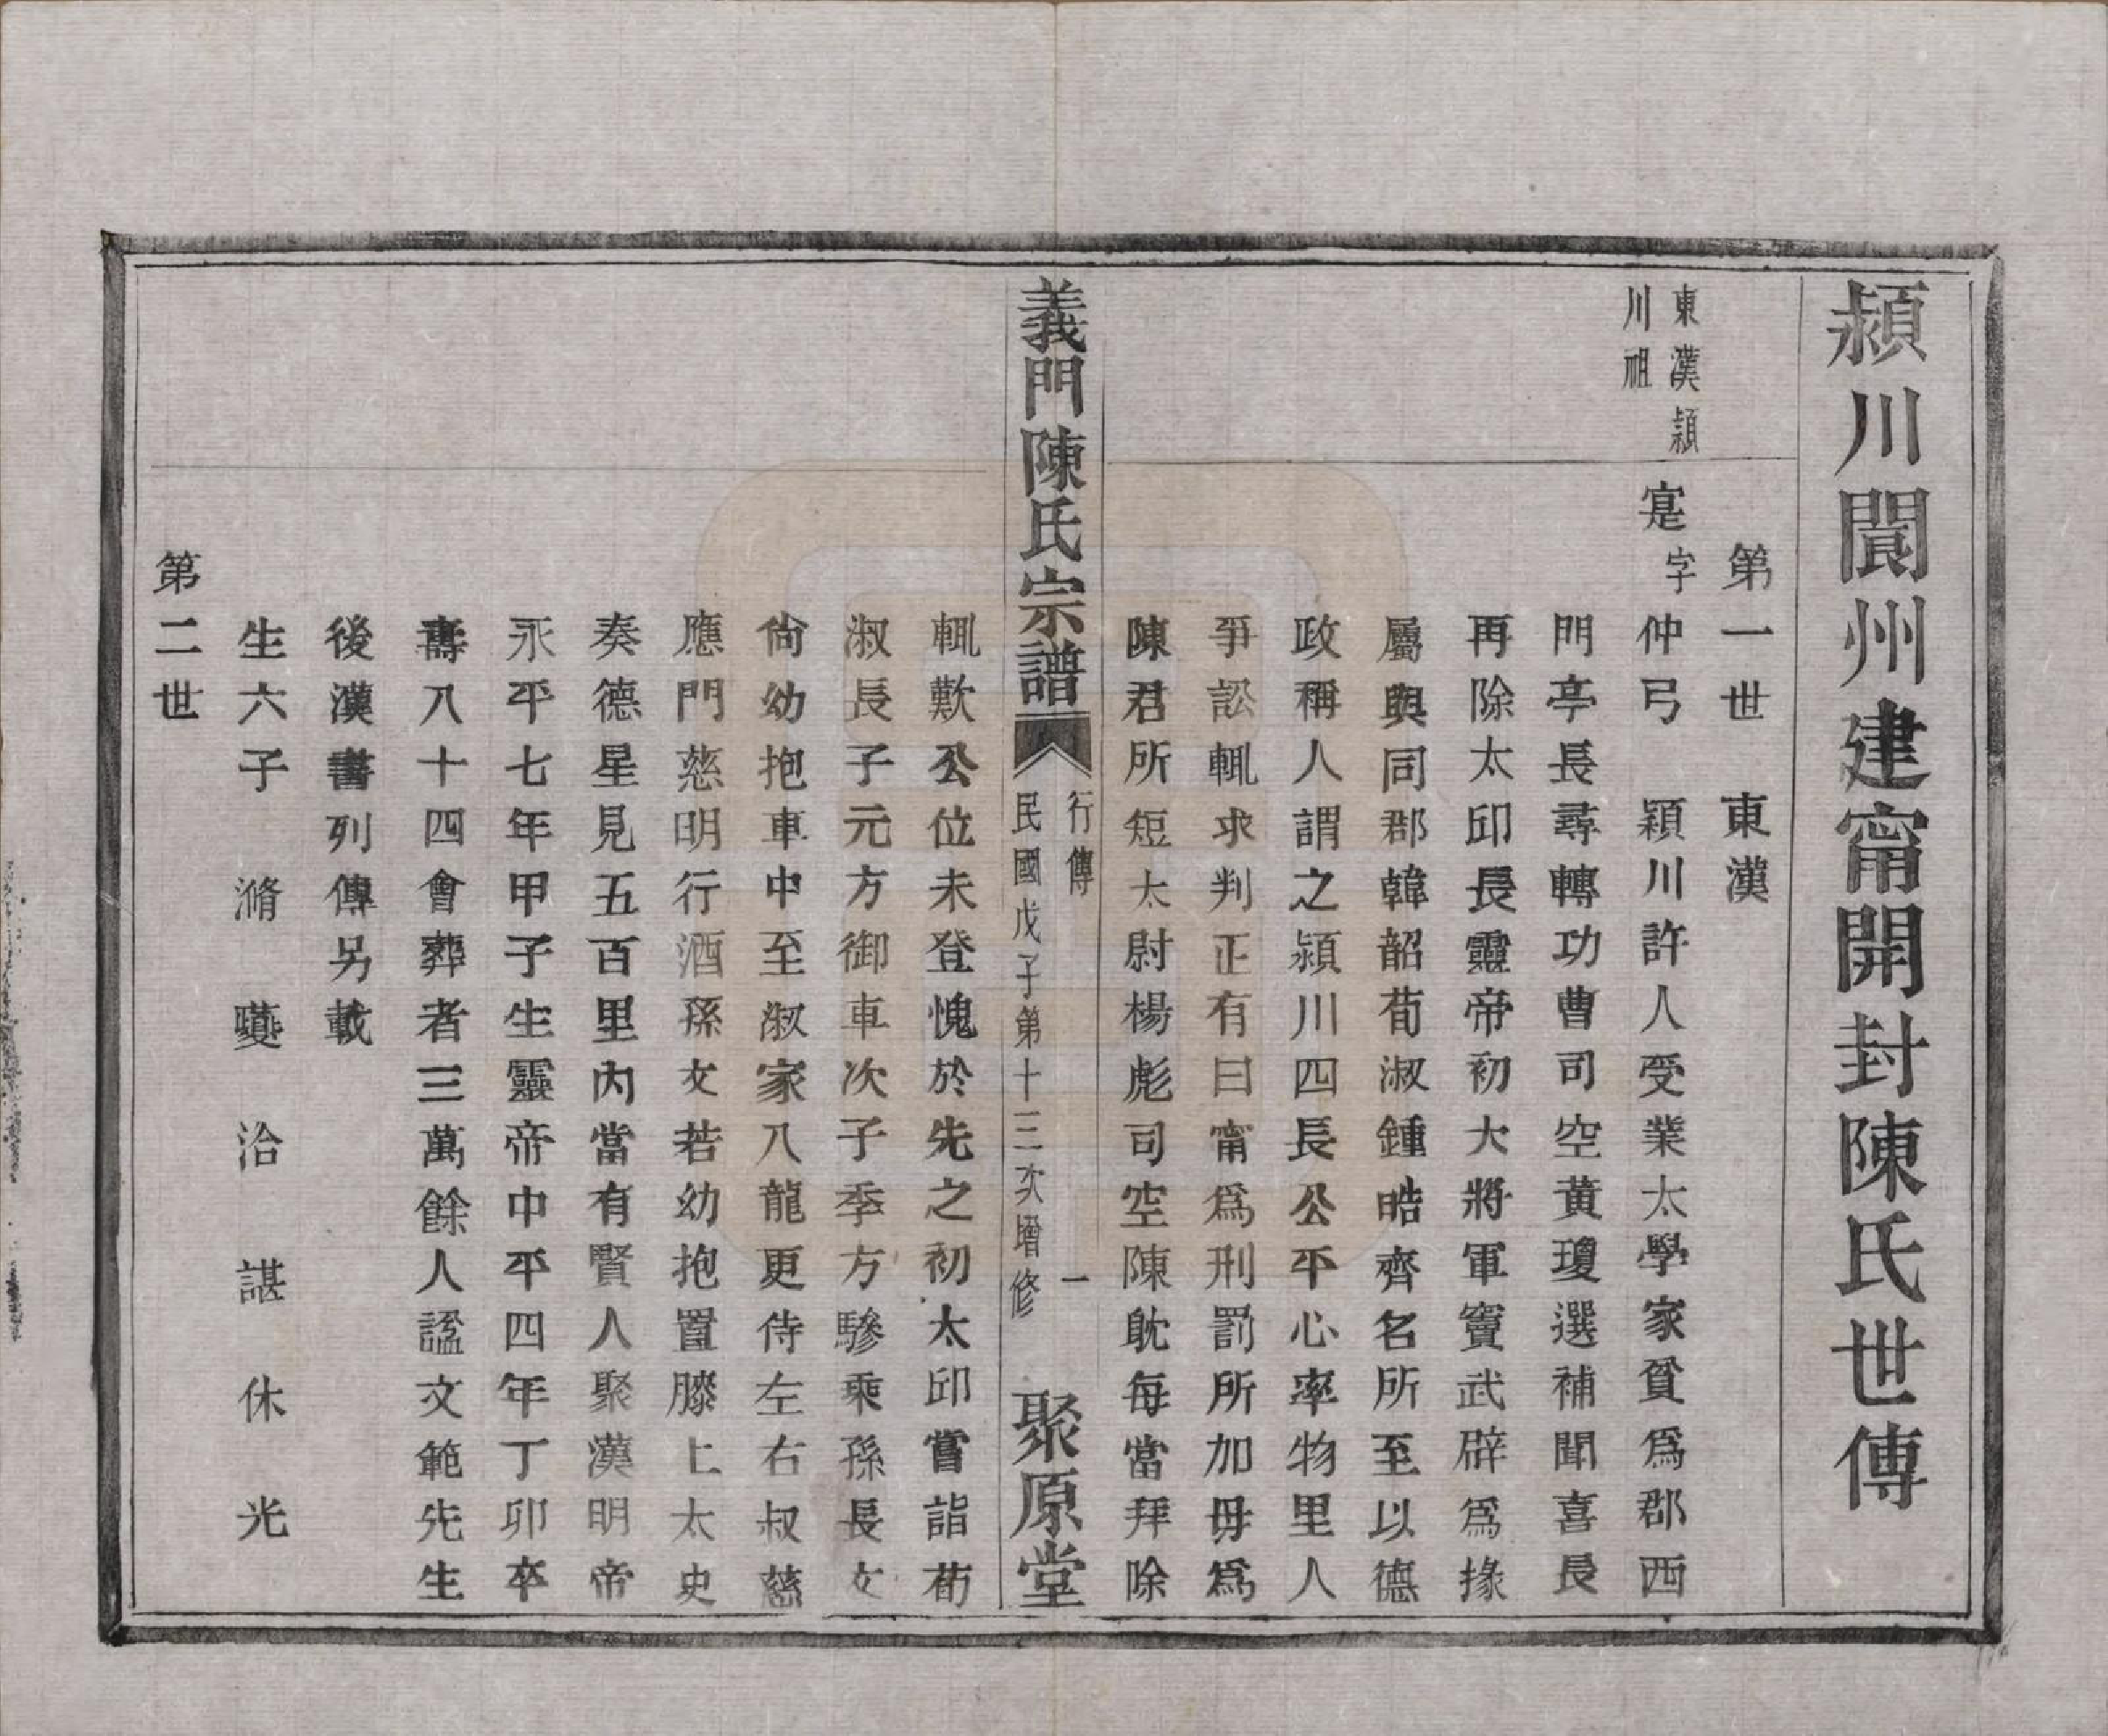 潁川閬州建甯開封陳氏世傳
第一世　東漢
東漢潁
川祖
寔字仲弓　潁川許人受業太學家貧爲郡西
門亭長尋轉功曹司空黃瓊選補聞喜長
再除太邱長靈帝初大將軍竇武辟爲掾
屬與同郡韓韶荀淑鍾皓齊名所至以德
政稱人謂之潁川四長公平心率物里人
爭訟輒求判正有曰甯爲刑罰所加毋爲
陳君所短太尉楊彪司空陳耽每當拜除
義門陳氏宗譜
行傳　一
民國戊子第十三次增修
聚原堂
輒歎公位未登愧於先之初太邱嘗詣荀
淑長子元方御車次子季方驂乘孫長文
尙幼抱車中至淑家八龍更侍左右叔慈
應門慈明行酒孫文若幼抱置膝上太史
奏德星見五百里內當有賢人聚漢明帝
永平七年甲子生靈帝中平四年丁卯卒
壽八十四會葬者三萬餘人諡文範先生
後漢書列傳另載
生六子　滫　夔　洽　諶　休　光
第二世